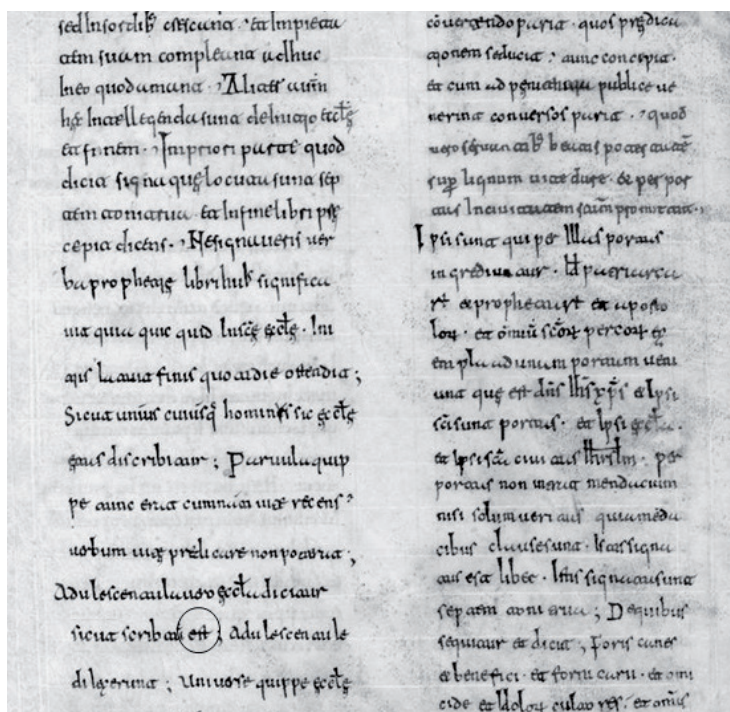 sed In sordib; crescunt . et Impieta
tem suam compleant adhuc
In eo quod amant . Alia
Intellegenda sunt de initio ęccl̄ę
et finem . In priori parte quod
dicit signa quę locuta sunt sep
tem tonitrua . et In fine libri pre
cepit dicens . Ne signaveris ver
ba prophetię libri significa
vit quia quicquid In sc̄ę ęccl̄ę . Ini
tiis latuit finis quotidie ostendit ;
Sicut unius cuiusq; hominis sic ęccl̄ę
ętas discribitur ; Parvula quip
pe tunc erat cum recens
verbum vitę predicare non poterat ;
Adulescentula vero ęccl̄a dicitur
sicut scribtū est ; Adulescentule
dilexerunt ; Universe quippe ęccl̄ę
cōvertendo parit . quos prędica
tionem seducit : tunc concepit .
et cum ad penitentiam publice ve
nerint conversos parit . quod
vero servantib; beatis
sup̄ lignum vite dare . et per por
tas In civitatem sc̄am
Ipsi sunt qui per Illas portas
ingrediuntur . patriarcha
rū et prophetarū et aposto
lorū . et omiū sc̄orū per eorū ex
empla ad unum portam veni
unt quę est dn̄s Ih̄s xp̄s et Ipsi
sc̄i sunt portas . et Ipsi ęccl̄a .
et Ipsi sc̄a civitas Ihrl̄m . per
portas non intrat mendacium
nisi solum veritas quia mēda
cibus clause sunt . Istas signa
tus est liber . Istis signatus sunt
septem tonitrua ; De quibus
sequitur et dicit ; Foris canes
et benefici . et fornicarii . et omi
cide et Idolorū cultores . et omīs